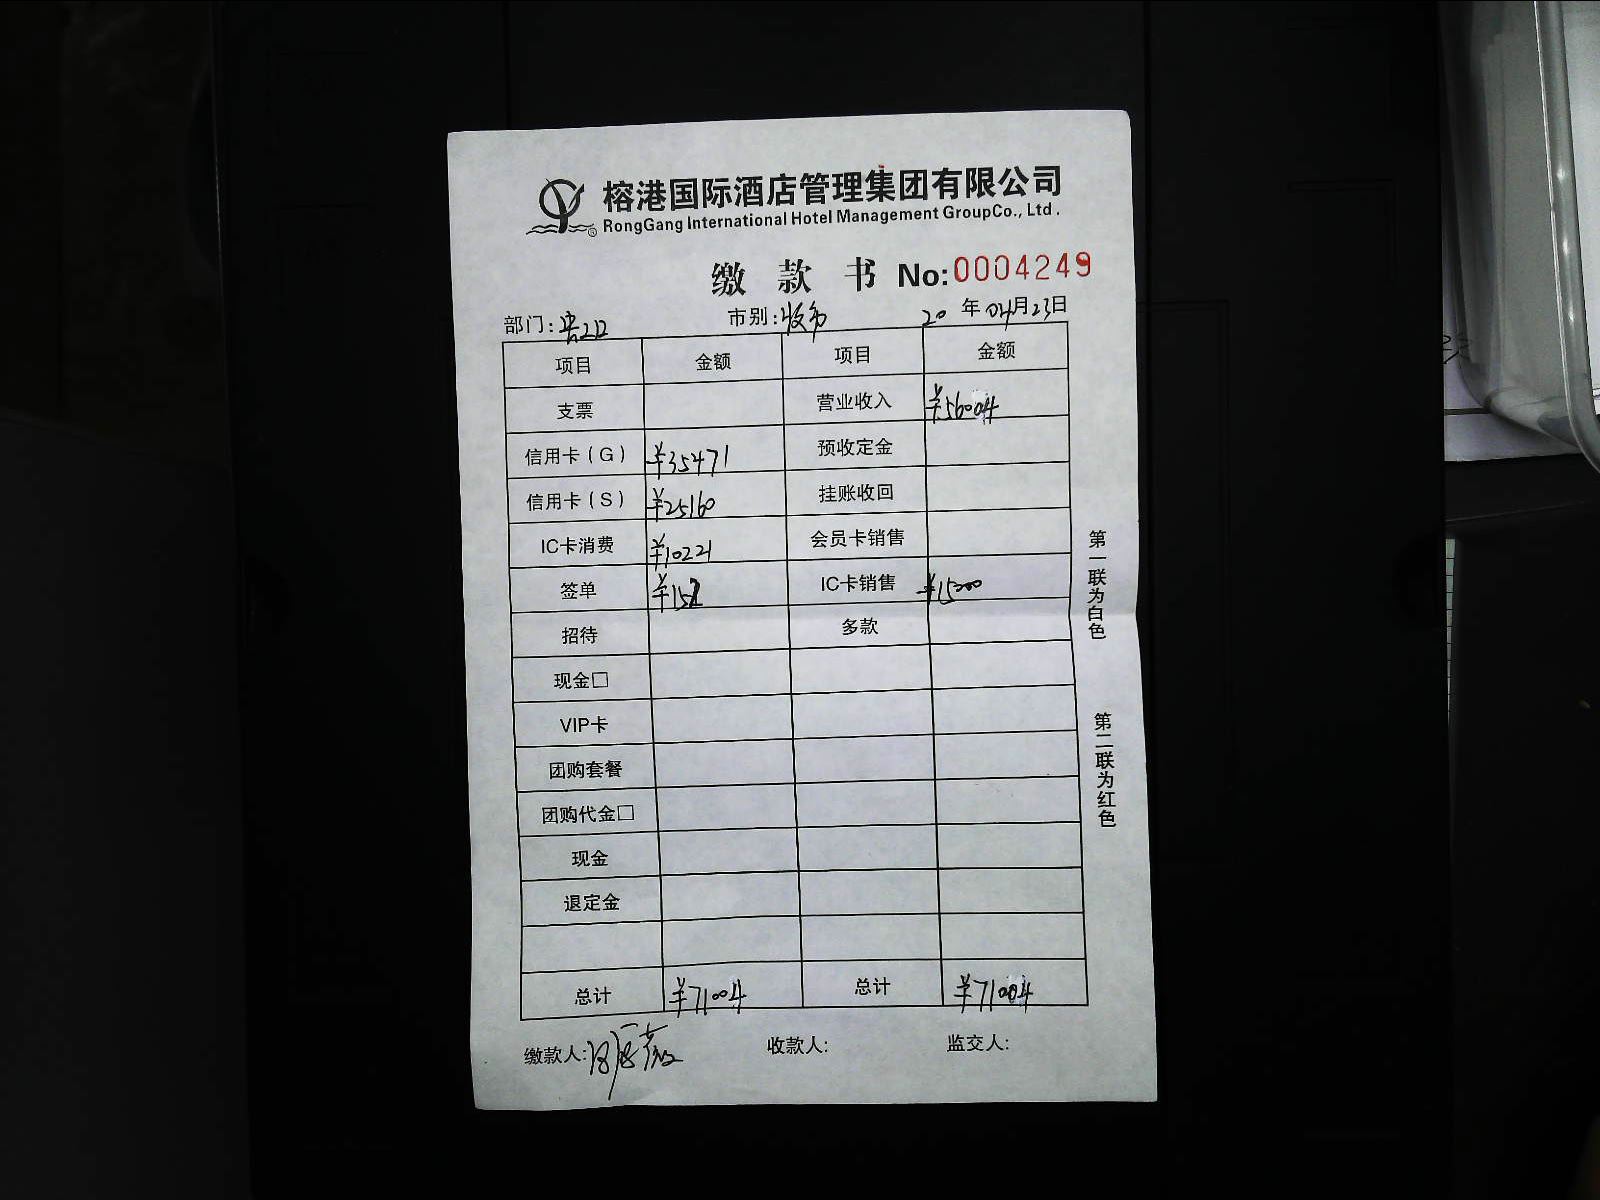 榕港国际酒店管理集团有限公司
RongGang International Hotel Management GroupCo., Ltd.
缴款书 No:0004249
部门: 市别:收市 20年04月23日
项目 金额 项目 金额
支票 营业收入 ¥56004
信用卡(G) ¥35471 预收定金
信用卡(S) ¥25160 挂账收回
IC卡消费 ¥10221 会员卡销售
签单 ¥152 IC卡销售 ¥15000
招待 多款
现金□
VIP卡
团购套餐
团购代金□
现金
退定金
总计 ¥71004 总计 ¥71004
缴款人: 收款人: 监交人:
第一联为白色
第二联为红色